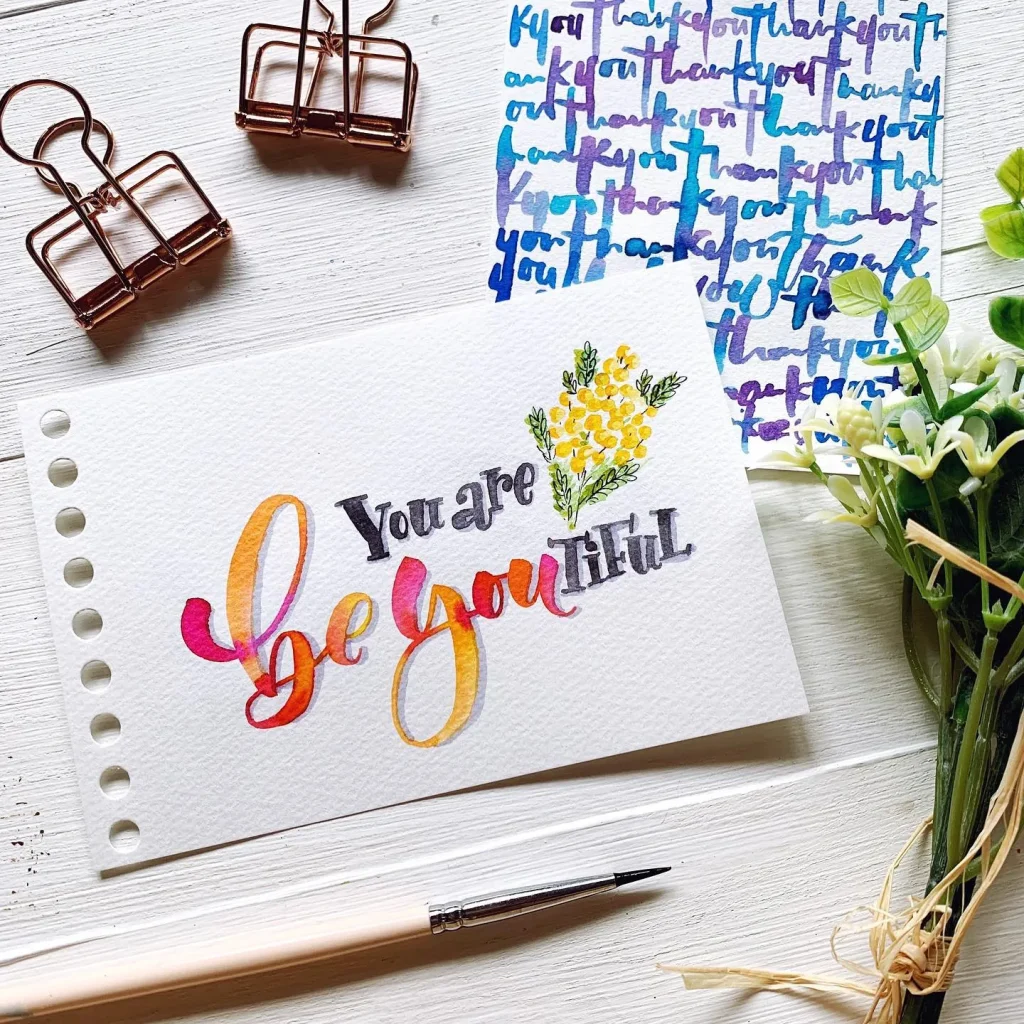 kyouthankyouthankyouth
ankyouthankyouthanky
outhankyouthankyout
hankyouthankyouthan
kyouthankyouthank
youthankyouthank
you
thankyou
You are
be youTiFuL